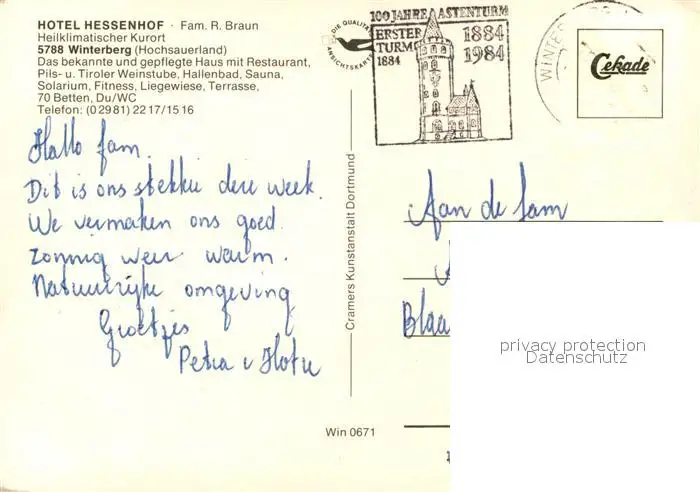 HOTEL HESSENHOF · Fam. R. Braun
Heilklimatischer Kurort
5788 Winterberg (Hochsauerland)
Das bekannte und gepflegte Haus mit Restaurant,
Pils- u. Tiroler Weinstube, Hallenbad, Sauna,
Solarium, Fitness, Liegewiese, Terrasse,
70 Betten, Du/WC
Telefon: (0 29 81) 22 17/15 16
Hallo fam.
Dit is ons stekkie deze week.
We vermaken ons goed.
zonnig weer warm.
Natuurlijke omgeving
Groetjes
Petra
DIE QUALITÄTS
ANSICHTSKARTE
Cramers Kunstanstalt Dortmund
Win 0671
100 JAHRE ASTENTURM
ERSTER
TURM
1884
1884
1984
WINTERBERG
Cekade
Aan de fam
Blaa
privacy protection
Datenschutz